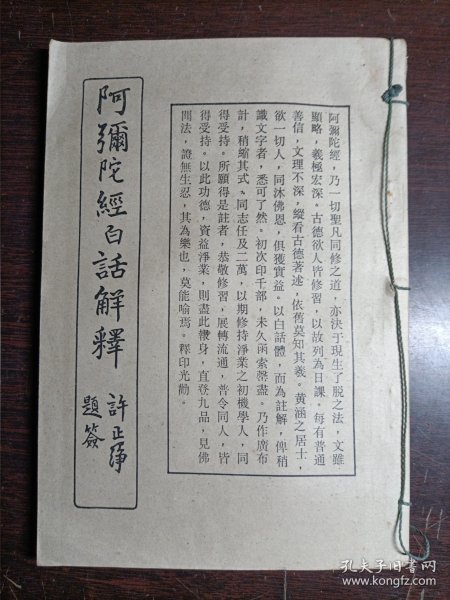 阿彌陀經白話解釋
許正綬
題簽
阿彌陀經，乃一切聖凡同修之道，亦決于現生了脫之法，文雖
顯略，義極宏深。古德欲人皆修習，以故列為日課。每有普通
善信，文理不深，縱看古德著述，依舊莫知其義。黃涵之居士，
欲一切人，同沐佛恩，俱獲實益。以白話體，而為註解，俾稍
識文字者，悉可了然。初次印千部，未久函索罄盡。乃作廣布
計，稍縮其式，同志任及二萬，以期修持淨業之初機學人，同
得受持。所願得是註者，恭敬修習，展轉流通，普令同人，皆
得受持。以此功德，資益淨業，則盡此報身，直登九品，見佛
聞法，證無生忍，其為樂也，莫能喻焉。釋印光勸。
孔夫子旧书网
www.kongfz.com